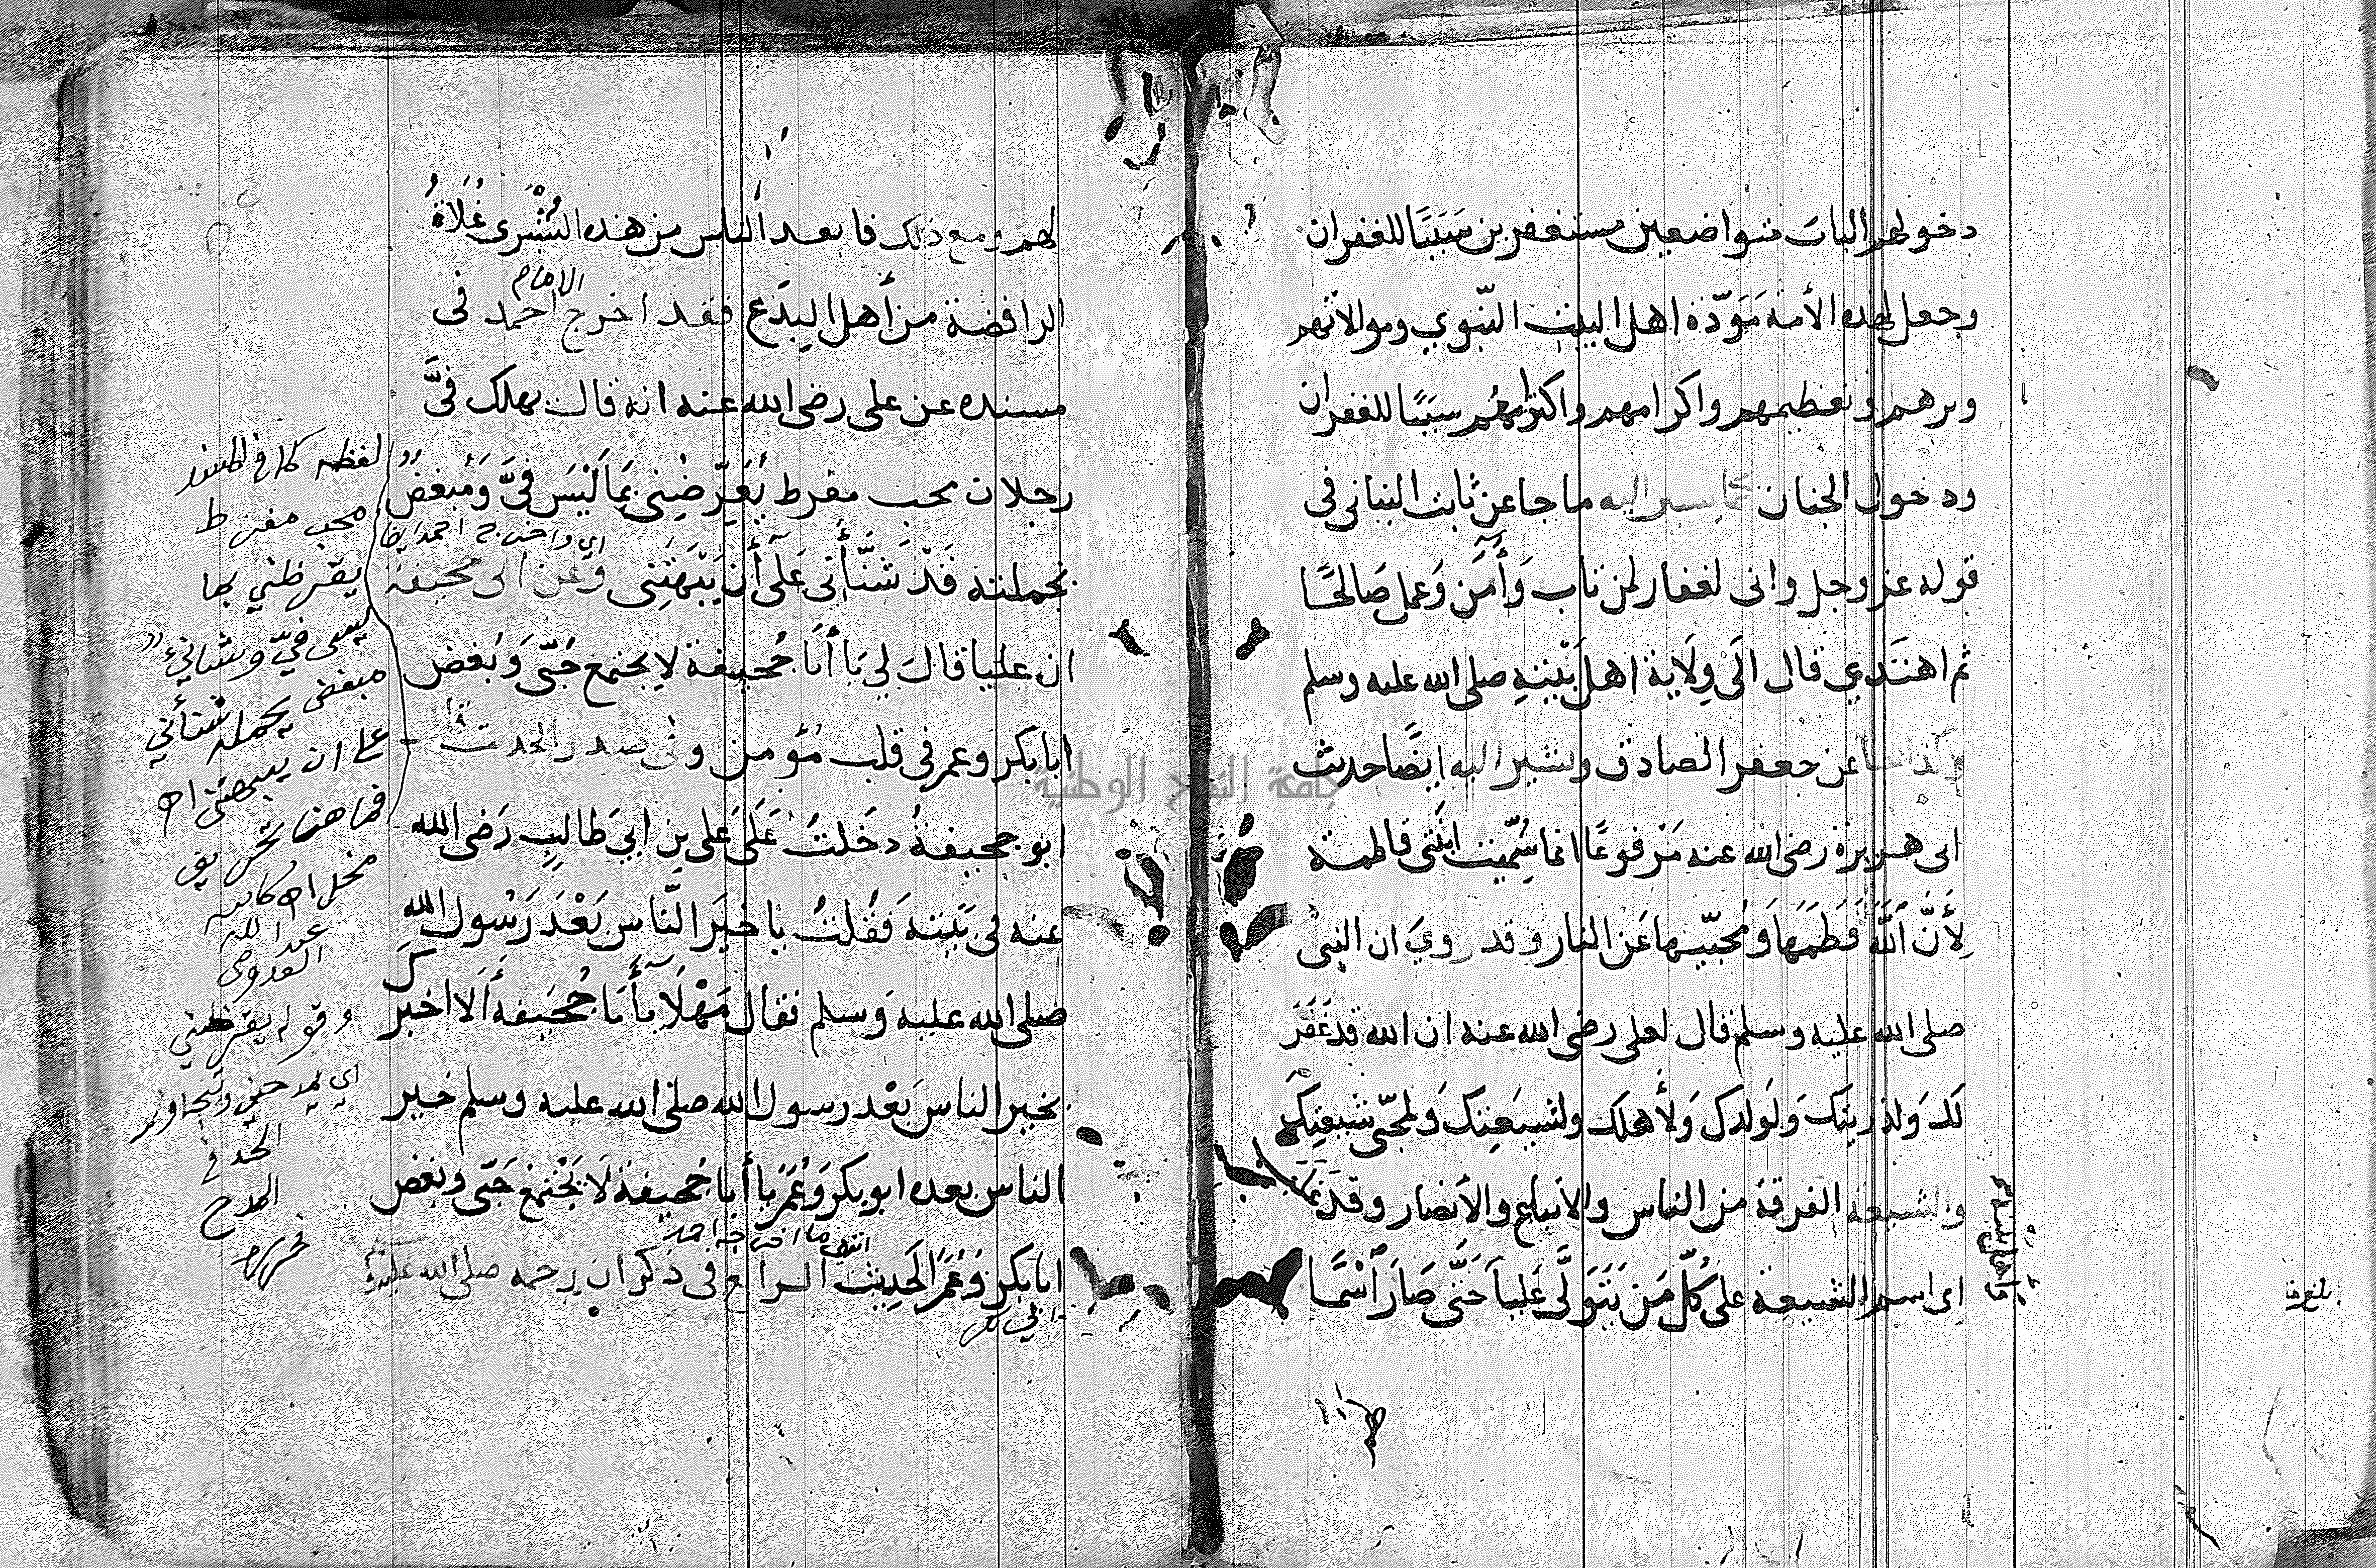 دخولهم الباب متواضعين مستغفرين سَبَبًا للغفران
وجعل لهذه الأمة مَوَدّة اهل البيت النّبوي وموالاتهم
وبرهم وتعظيمهم واكرامهم سببًا للغفران
ودخول الجنان كما يشير اليه ما جا عن ثابت البناني في
قوله عز وجل واني لغفار لمن تاب وَأٓمَن وَعمل صَالحًا
ثم اهتَدي قال الَى وِلَاية اهل بَيْته صلى الله عليه وسلم
وكذا جا عن جعفر الصادق ويشير اليه ايضًا حديث
ابى هريرة رضى الله عنه مَرْفوعًا انما سُمّيت ابنَتي فاطمة
لِأَنَّ ٱللَّه فَطَمَهَا وَمُحبّيها عَن النار وقد رويَ ان النبى
صلى الله عليه وسلم قال لعلى رضى الله عنه ان الله قد غَفَر
لكَ وَلذريتكَ وَلوَلدك وَلأهلك ولشيعَتِكَ وَلمحبّى شيعَتِكَ
والشيعة الفرقة من الناس والاتباع والأنصار وقد
اى اسم الشيعة على كُلّ مَن يَتَوَلَّى عَلياً حَتَّى صَارَ ٱسْمًا
لهم ومع ذلك فابعد الناس من هذه البُشْرى غُلَاةُ
الرافضة من أهل البِدَع فقد اخرج الامام احمد فى
مسنده عن على رضى الله عنه انه قال يهلك فيَّ
رجلان محب مفرط يُقَرِّضُنِى بِمَا لَيْسَ فيَّ وَمُبغضٌ
اي واخرجه احمد ايضا
بحملته قَدْ شَنَّأنى عَلَى أَن يَبْهَتَنِى وَعن ابى جحيفة
ان عليا قالَ لِي يَا أبَا جُحيفة لا يجتمع حُبّى وَبُغض
ابا بكر وعمر في قلب مُؤمن وفى صدر الحديث قال
ابو جحيفةُ دخَلتُ عَلَى عَلى بن ابي طَالبٍ رَضى الله
عنه فى بَيْته فَقُلتُ يا خيَر النَّاس بَعْدَ رَسُول الله
صلى الله عليه وَسلم فقال مَهْلًا يأَبَا جُحَيفه أَلَا اخبرك
بخير الناس بَعْد رسول الله صلى الله عليه وسلم خير
الناس بعده ابو بكر وَعُمَر يا أبا جُحيفة لَا يَجْتمع حُبّى وبغض
انتهى ما اخرجه احمد
ابا بكر وَعُمَر الحَديث الرابع فى ذكر ان رحمه صلى الله عليه وسلم
لفظه كما في المسند
محب مفرط
يقرظني بما
ليس فيّ وشنانيء
مبغض يحمله شنأني
على ان يبهتني اه
فما هنا تحريف
مخل اه كاتبه
عبد الله
وقوله يقرظني
اي يمدحني ويتجاوز
الحد في
المدح